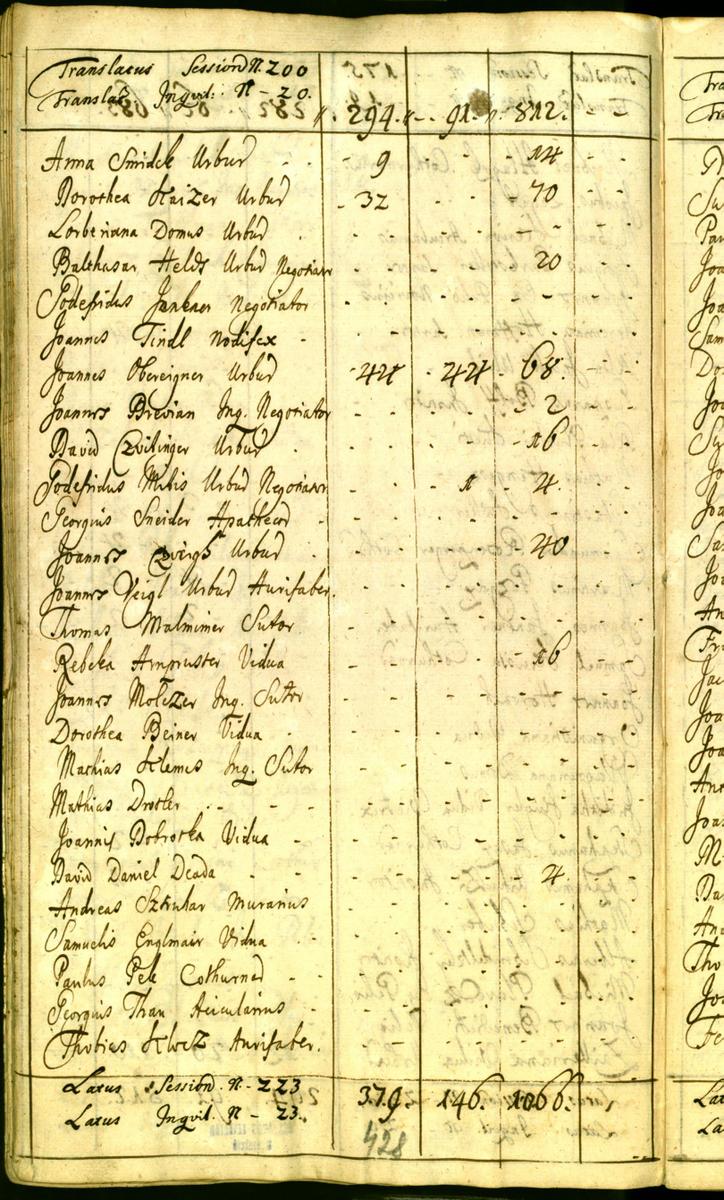 Translatus Sessiond N. 200
Translat Inqvil: N - 20. 294. 91. 812.
Anna Smidek Urbud 9 14
Dorothea Kaizer Urbud 32 70
Lorberiana Domus Urbud
Balthasar Helds Urbud Negotiator 20
Godefridus Jankner Negotiator
Joannes Tindl Nodifex
Joannes Obereigner Urbud 44 44 68.
Joannes Brevian Inq. Negotiator 2
David Czvitinger Urbud 16
Godefridus Milis Urbud Negotiator 1 4.
Georgius Sneider Apatheca
Joannes Urbud 40
Joannes Veigl Urbud Aurifaber.
Thomas Malmimer Sutor
Rebeka Armpruster Vidua 16
Joannes Moltzer Inq. Sutor
Dorothea Beiner Vidua
Mathias Klemes Inq. Sutor
Mathias Droter
Joannis Dobrotka Vidua
David Daniel Deada 4.
Andreas Szkular Murarius
Samuelis Englmair Vidua
Paulus Pek Cothurnad
Georgius Than Acicularius
Thobias Klocz Aurifaber.
Latus Sessiond. N. 223 379. 146. 1066.
Latus Inqvil. N - 23.
428